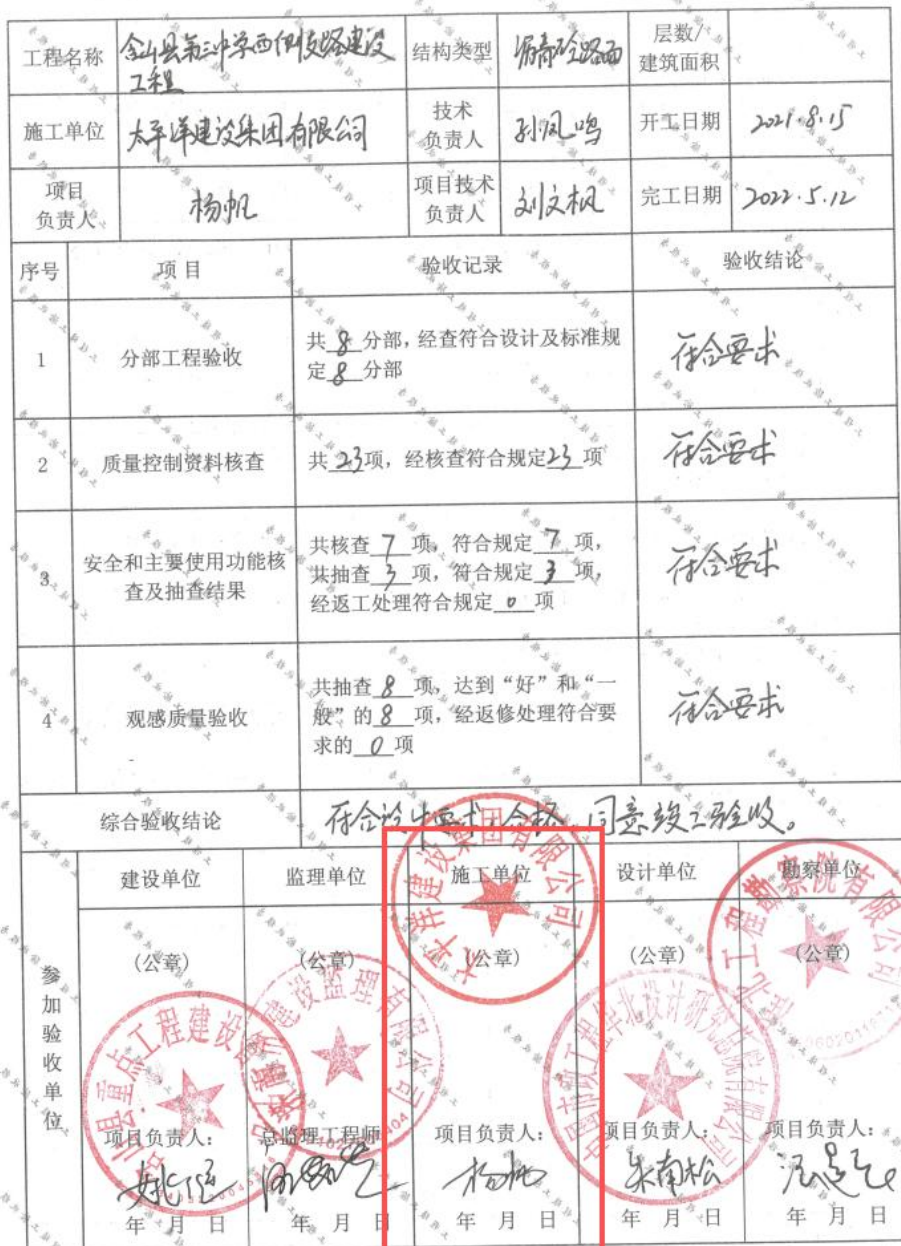 工程名称 金山县第三中学西侧支路建设工程 结构类型 沥青砼路面 层数/建筑面积
施工单位 太平洋建设集团有限公司 技术负责人 孙凤鸣 开工日期 2021.8.15
项目负责人 杨帆 项目技术负责人 刘文枫 完工日期 2022.5.12
序号 项目 验收记录 验收结论
1 分部工程验收 共8分部，经查符合设计及标准规定8分部 符合要求
2 质量控制资料核查 共23项，经核查符合规定23项 符合要求
3 安全和主要使用功能核查及抽查结果 共核查7项，符合规定7项，共抽查3项，符合规定3项，经返工处理符合规定0项 符合要求
4 观感质量验收 共抽查8项，达到“好”和“一般”的8项，经返修处理符合要求的0项 符合要求
综合验收结论 符合设计要求，合格，同意竣工验收。
参加验收单位
建设单位 监理单位 施工单位 设计单位 勘察单位
(公章) (公章) (公章) (公章) (公章)
太平洋建设集团有限公司
项目负责人： 总监理工程师 项目负责人： 项目负责人： 项目负责人：
杨帆 朱南松
年 月 日 年 月 日 年 月 日 年 月 日 年 月 日